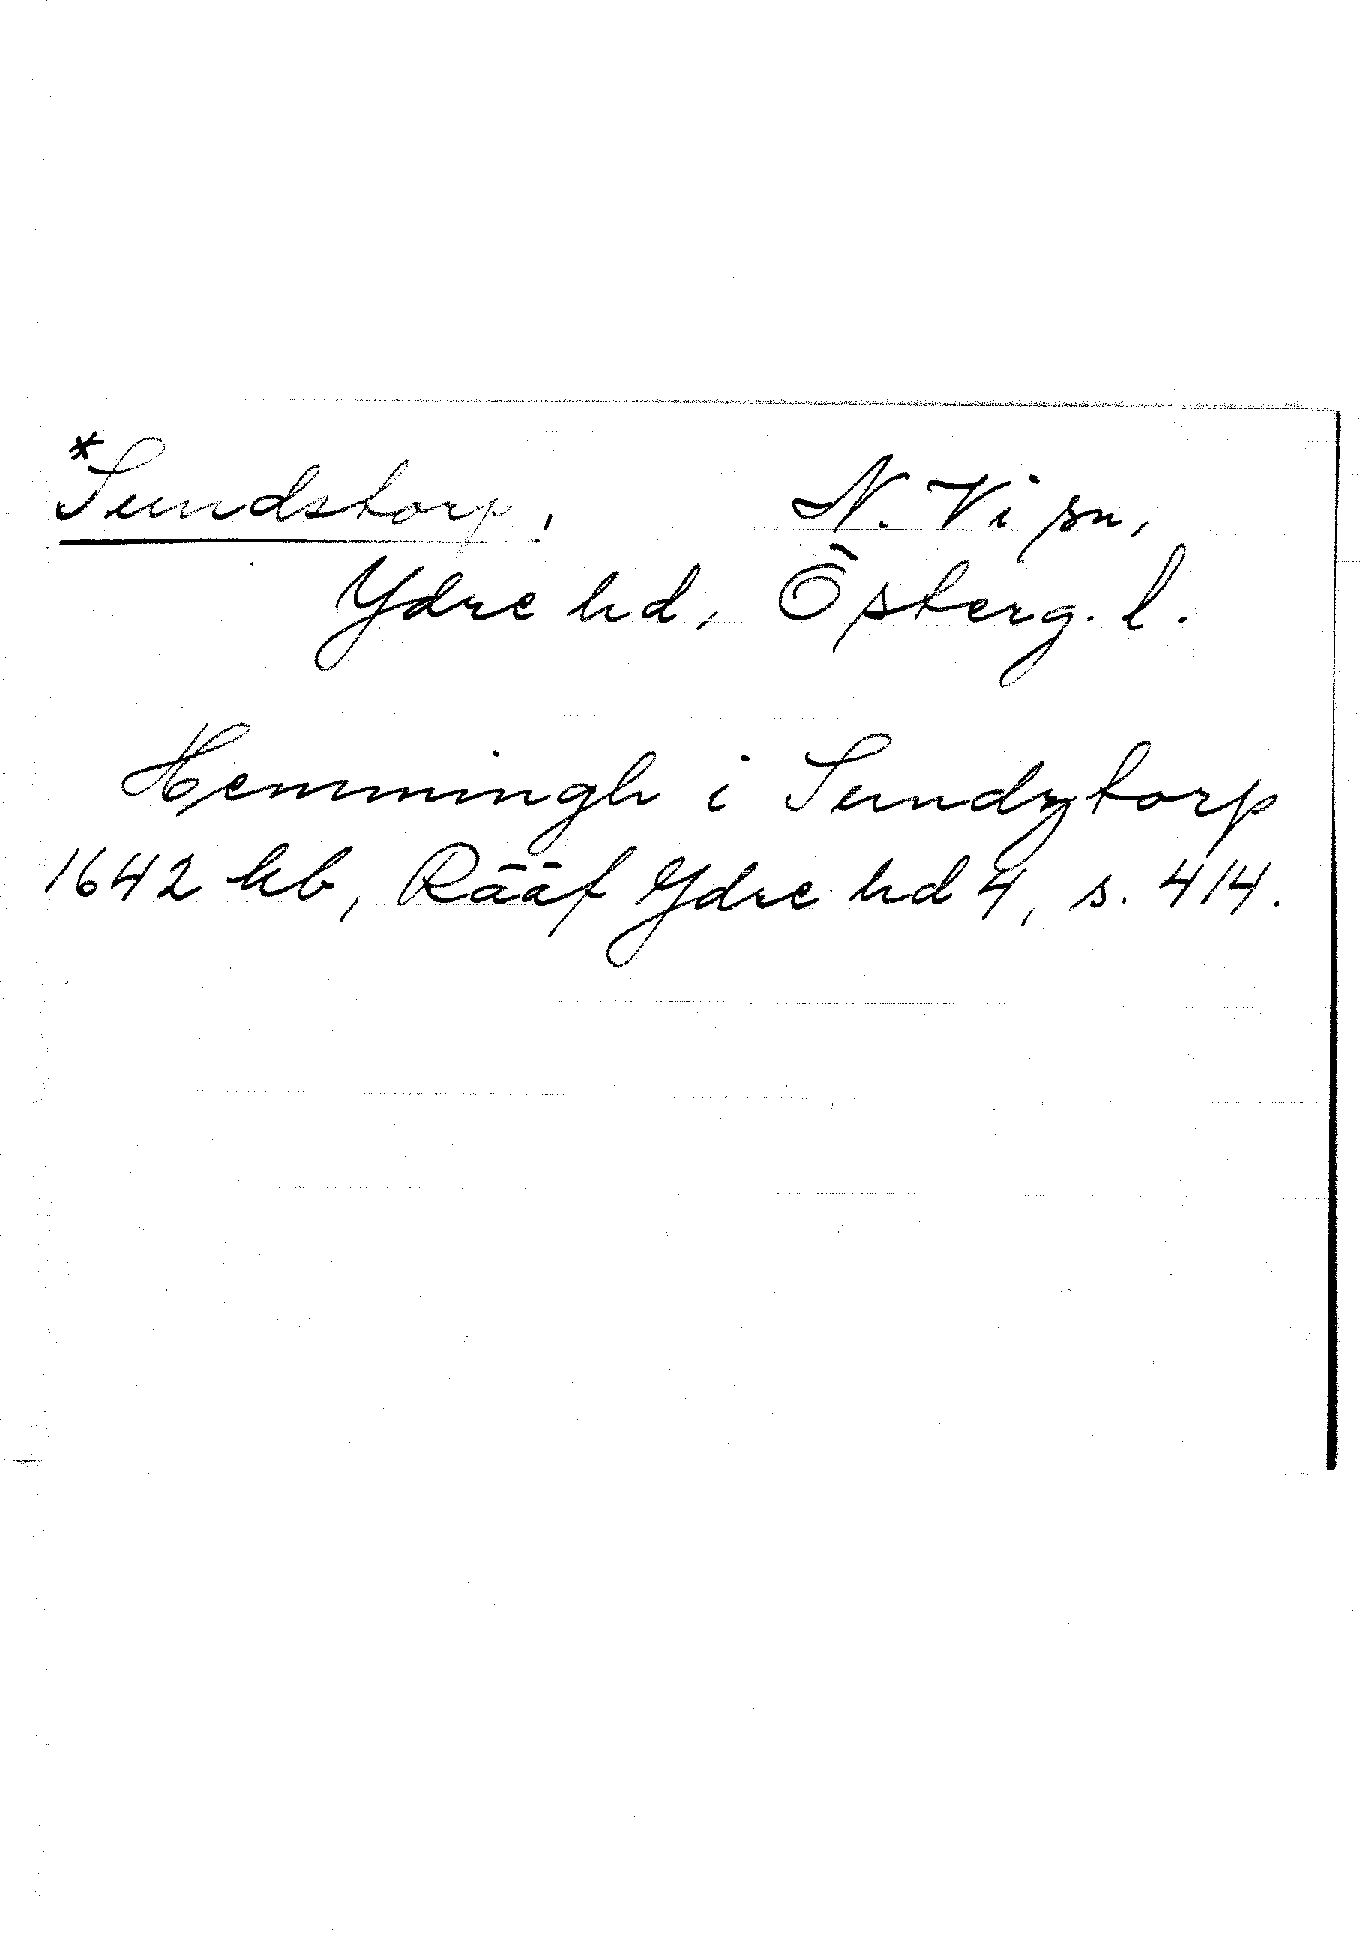 *Sundstorp, N. Vi sn,
Ydre hd, Österg. l.
Hemmingh i Sundztorp
1642 kb, Rääf Ydre hd 4, s. 414.